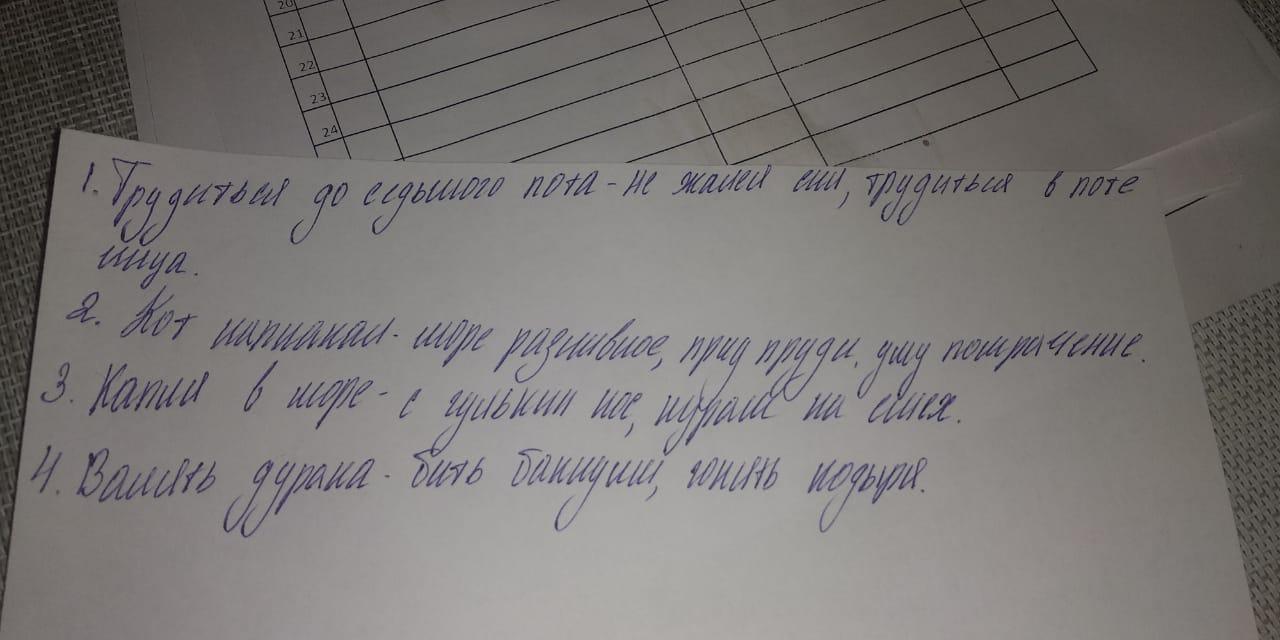 20
21
22
23
24
1. Трудиться до седьмого пота - не жалея сил, трудиться в поте
лица.
2. Кот наплакал - море разливное, пруд пруди. уму помрачение.
3. Капля в море - с гулькин нос, курам на смех.
4. Валять дурака - бить баклуши, гонять лодыря.